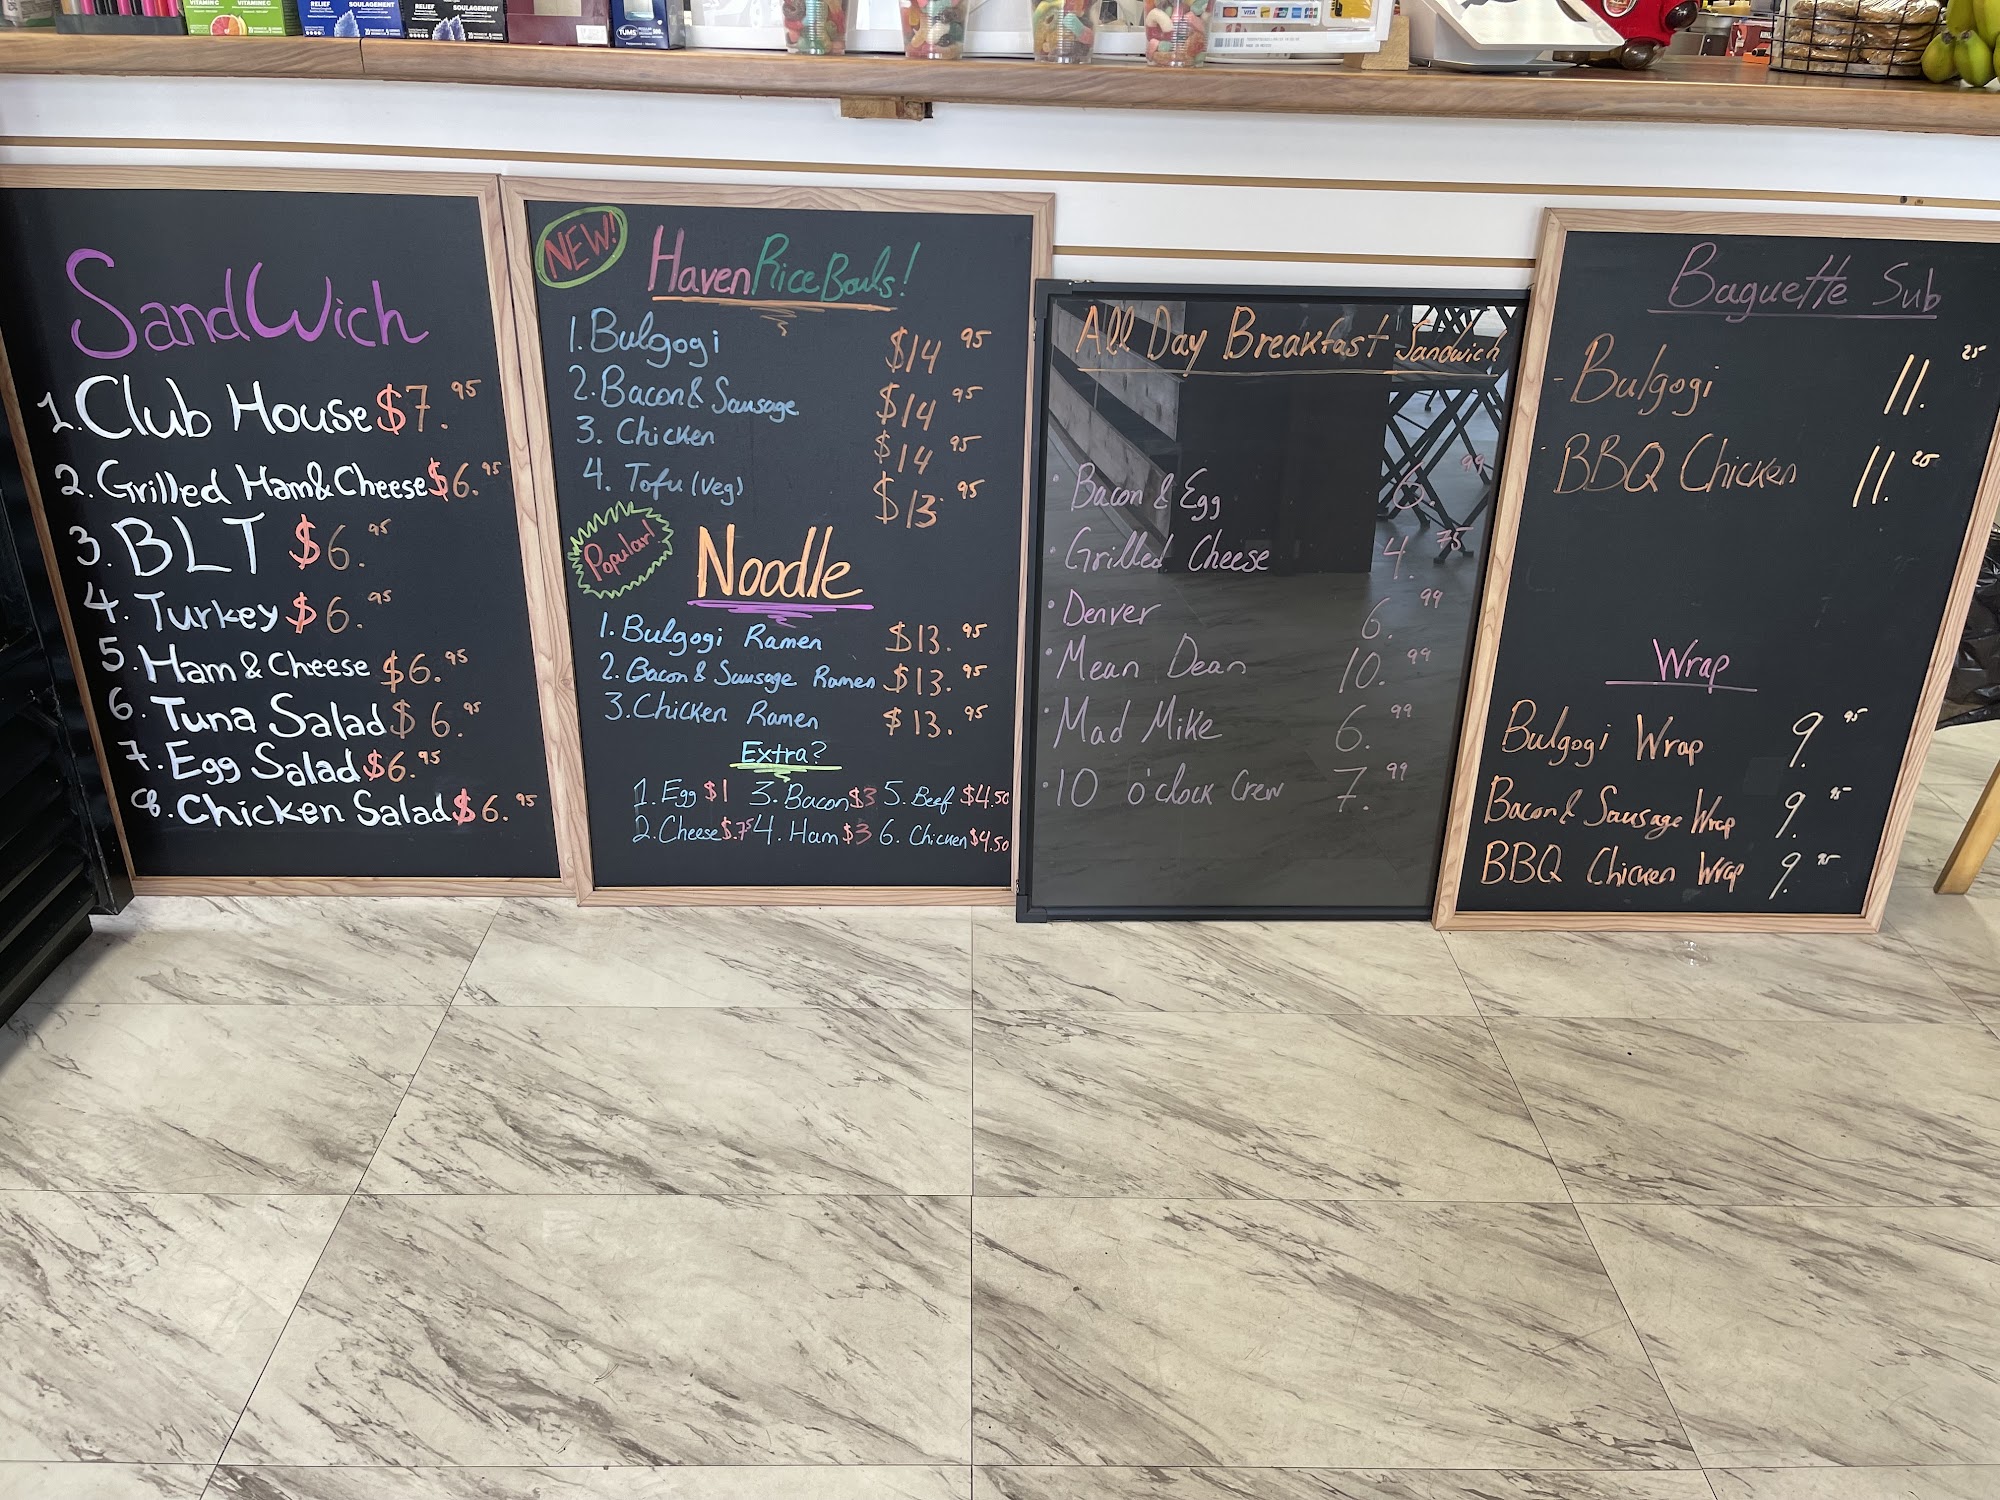 VITAMIN C
VITAMINE C
RELIEF
SOULAGEMENT
RELIEF
SOULAGEMENT
TUMS
VISA
SandWich
1. Club House $7.95
2. Grilled Ham & Cheese $6.95
3. BLT $6.95
4. Turkey $6.95
5. Ham & Cheese $6.95
6. Tuna Salad $6.95
7. Egg Salad $6.95
8. Chicken Salad $6.95
NEW!
Haven Rice Bowls!
1. Bulgogi $14.95
2. Bacon & Sausage $14.95
3. Chicken $14.95
4. Tofu (Veg) $13.95
Popular!
Noodle
1. Bulgogi Ramen $13.95
2. Bacon & Sausage Ramen $13.95
3. Chicken Ramen $13.95
Extra?
1. Egg $1 3. Bacon $3 5. Beef $4.50
2. Cheese $.75 4. Ham $3 6. Chicken $4.50
All Day Breakfast Sandwich
· Bacon & Egg 6.99
· Grilled Cheese 4.75
· Denver 6.99
· Mean Dean 10.99
· Mad Mike 6.99
· 10 o'clock Crew 7.99
Baguette Sub
- Bulgogi 11.25
- BBQ Chicken 11.25
Wrap
Bulgogi Wrap 9.95
Bacon & Sausage Wrap 9.95
BBQ Chicken Wrap 9.95